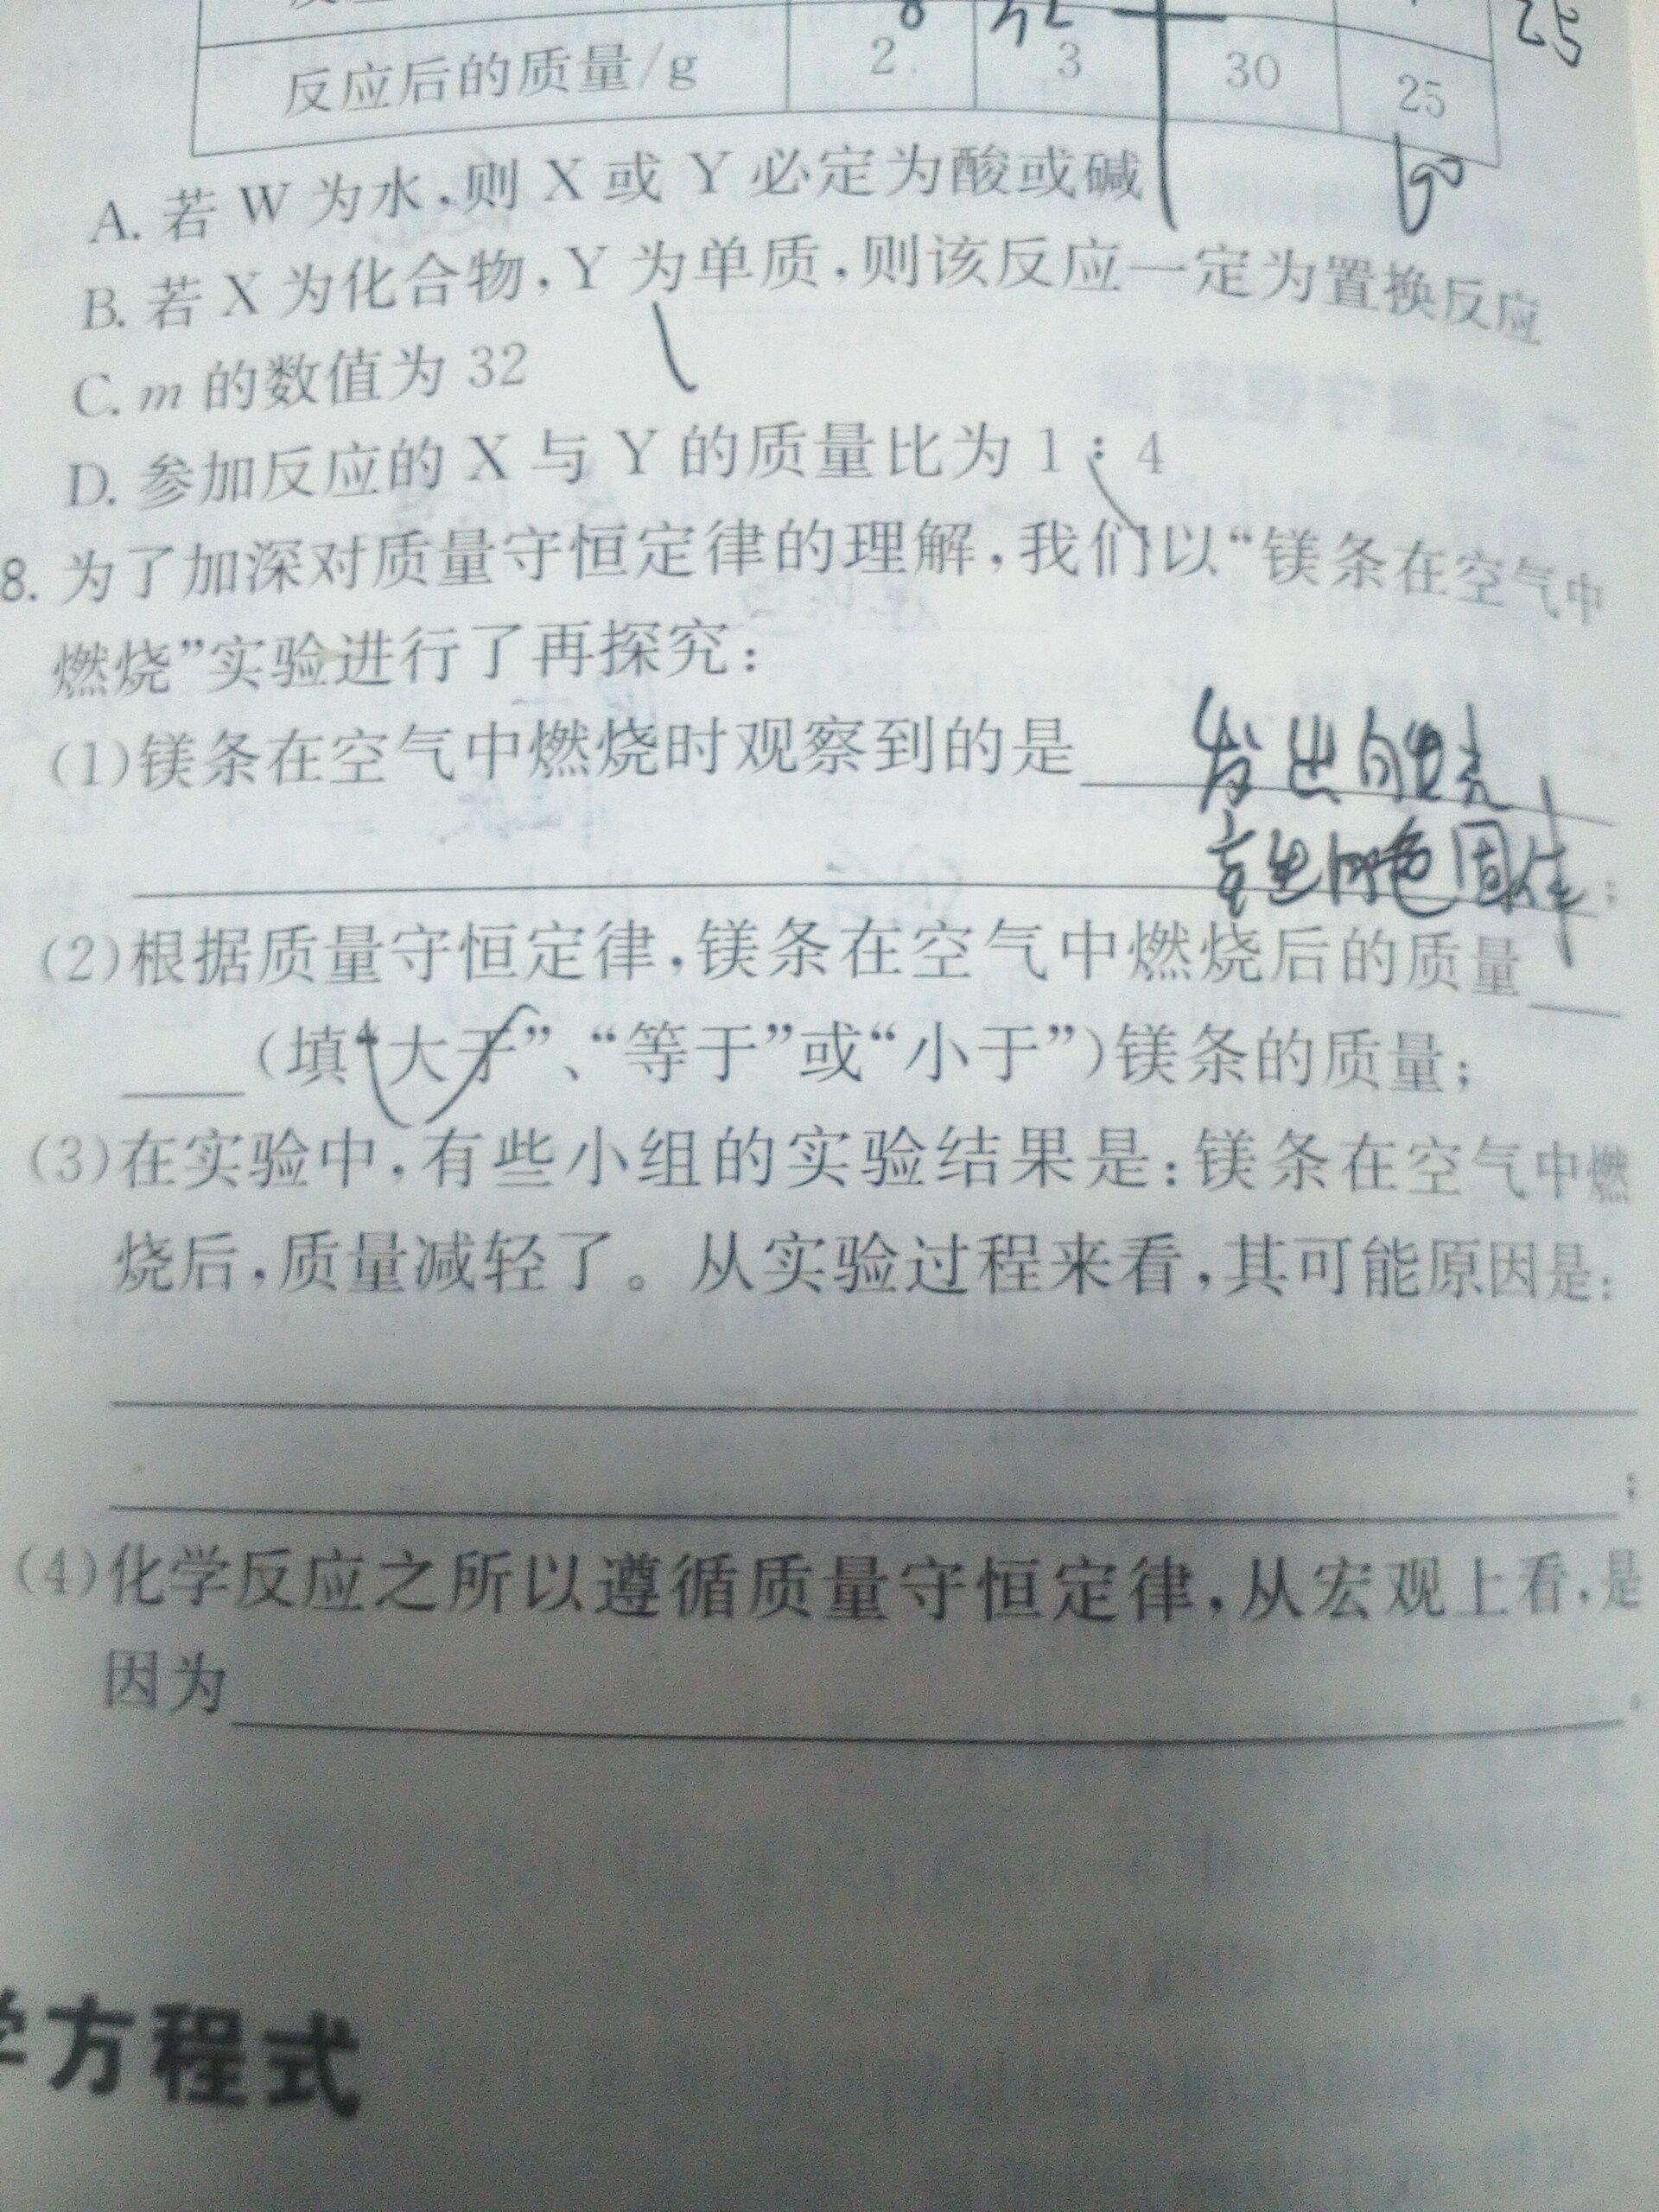 反应后的质量/g 2 3 30 25
A. 若 W 为水,则 X 或 Y 必定为酸或碱
B. 若 X 为化合物,Y 为单质,则该反应一定为置换反应
C. m 的数值为 32
D. 参加反应的 X 与 Y 的质量比为 1∶4
8. 为了加深对质量守恒定律的理解,我们以“镁条在空气中
燃烧”实验进行了再探究:
(1)镁条在空气中燃烧时观察到的是 发出
色固体;
(2)根据质量守恒定律,镁条在空气中燃烧后的质量
(填“大于”、“等于”或“小于”)镁条的质量;
(3)在实验中,有些小组的实验结果是:镁条在空气中燃
烧后,质量减轻了。从实验过程来看,其可能原因是:
;
(4)化学反应之所以遵循质量守恒定律,从宏观上看,是
因为。
学方程式